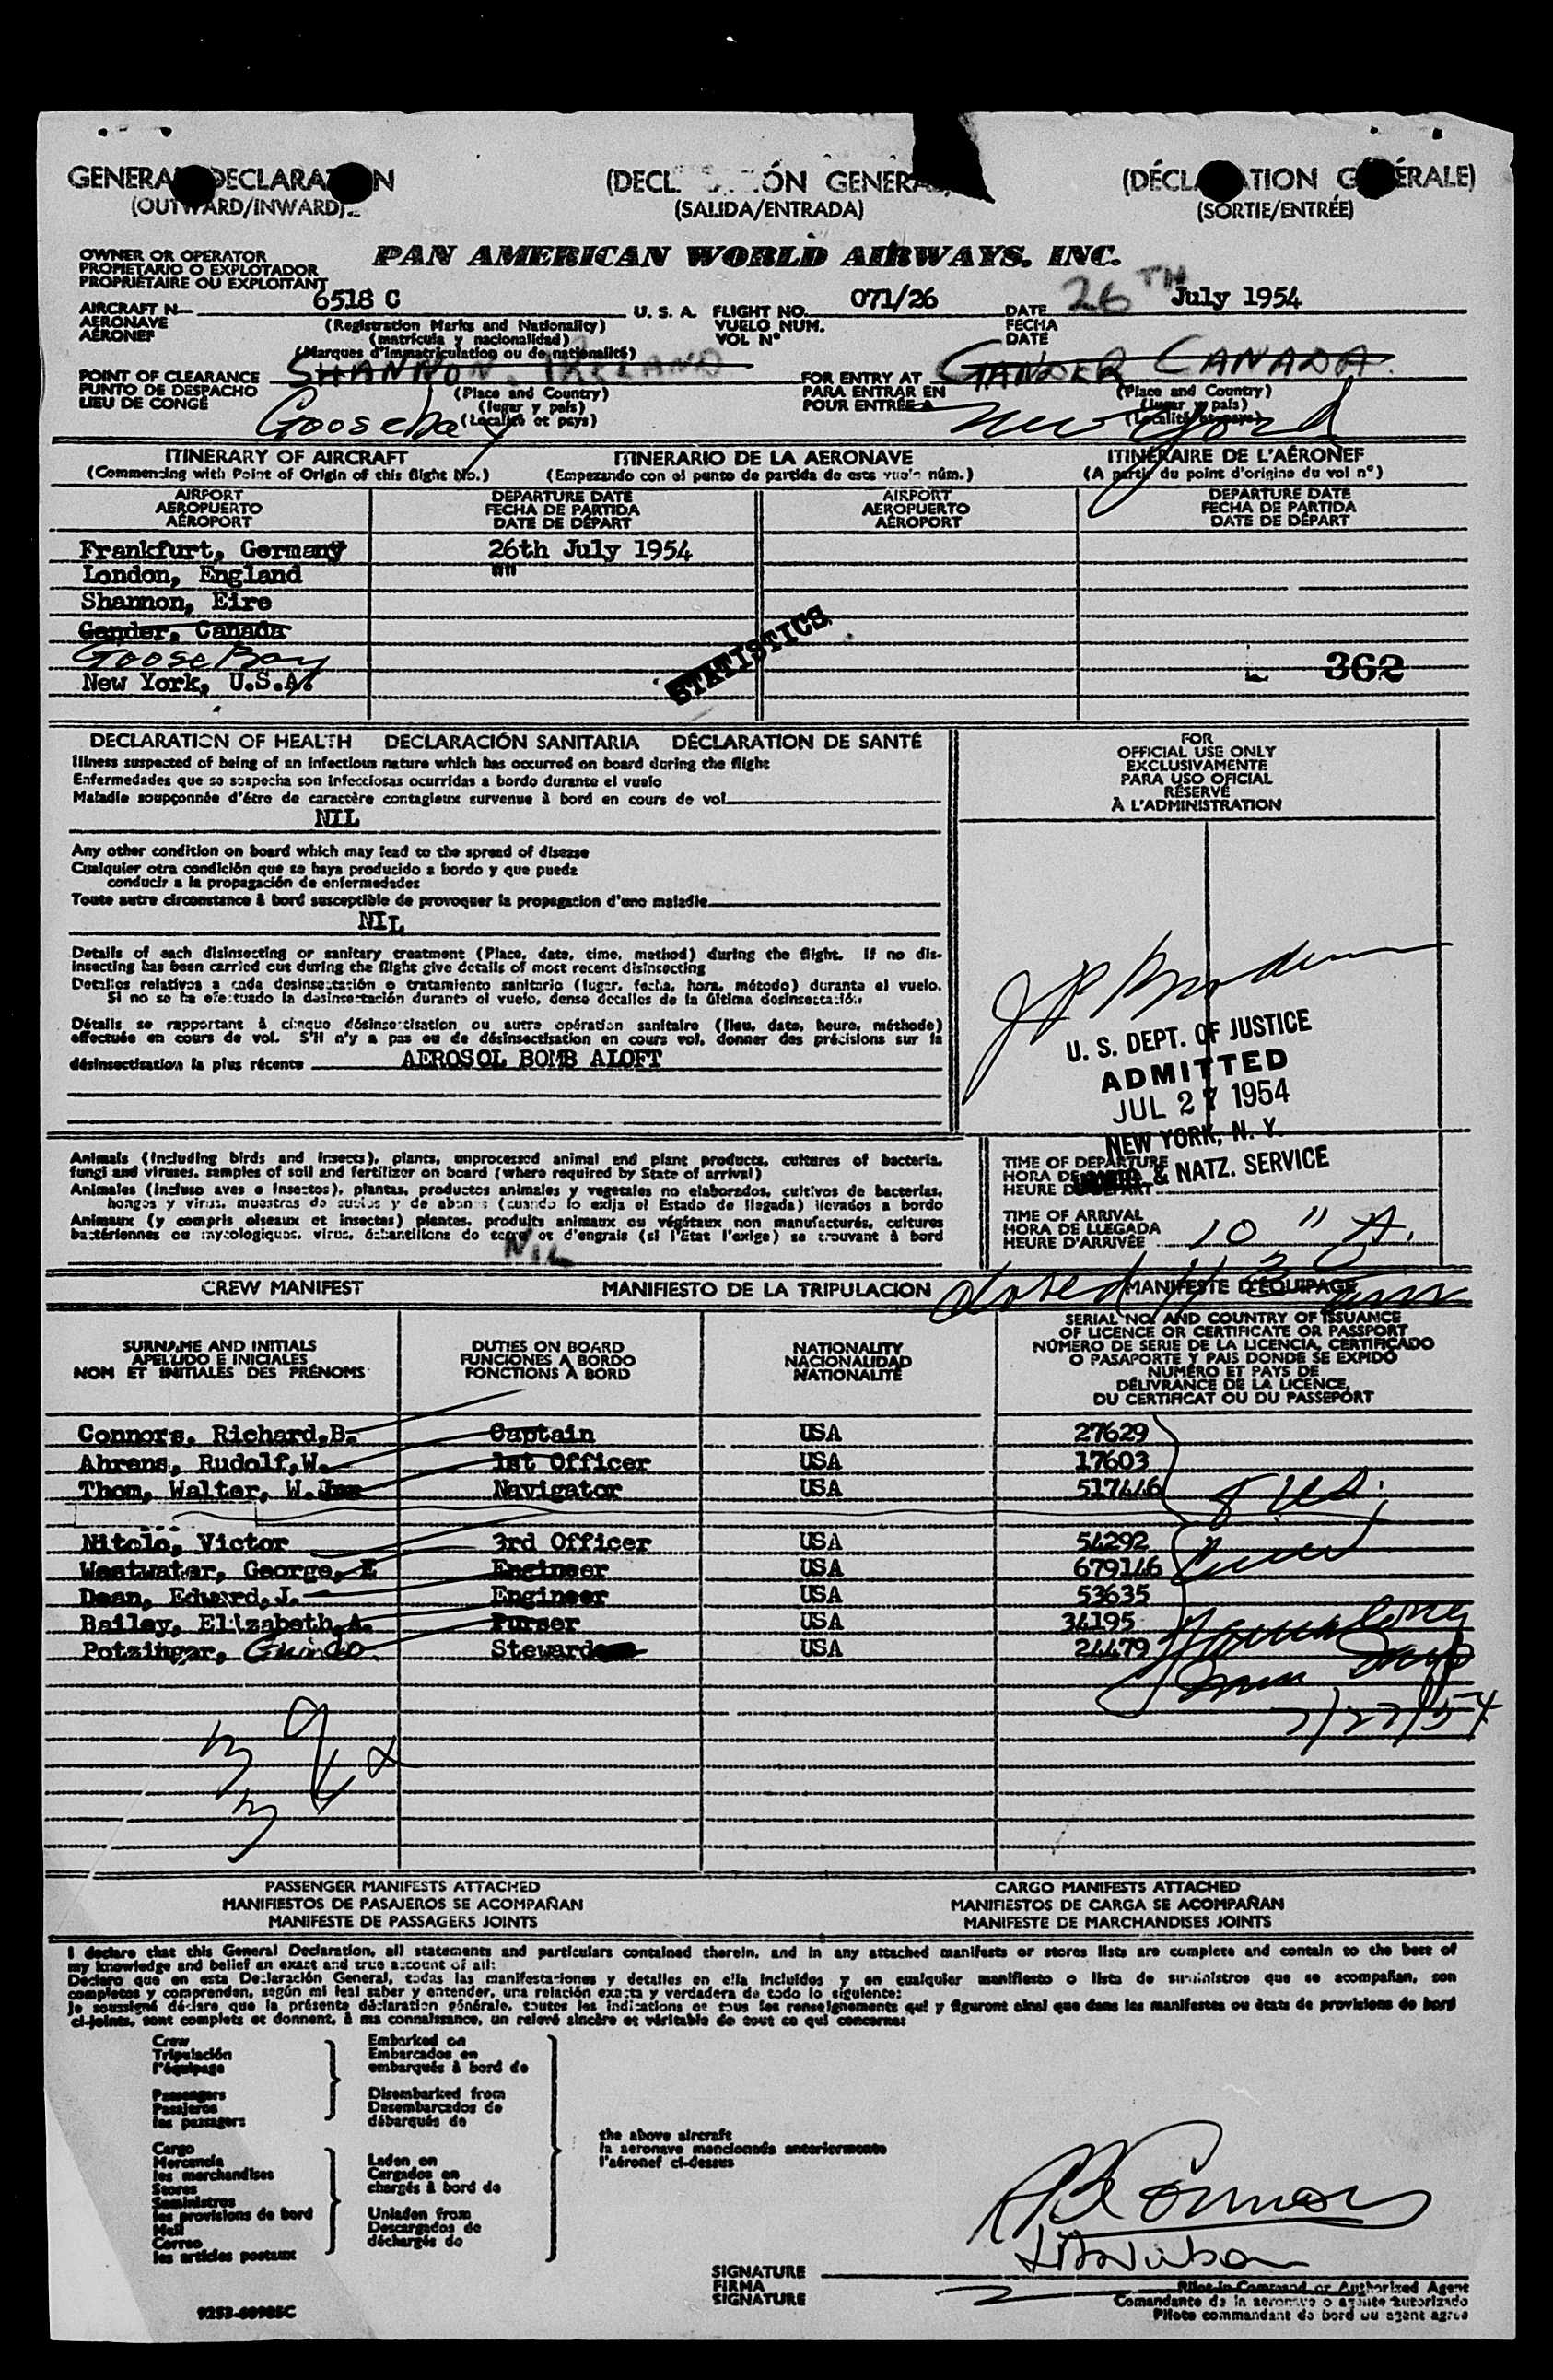 GENERAL DECLARATION
(OUTWARD/INWARD)
(DECL ÓN GENERAL)
(SALIDA/ENTRADA)
(DÉCLARATION GÉNÉRALE)
(SORTIE/ENTRÉE)
OWNER OR OPERATOR
PROPIETARIO O EXPLOTADOR
PROPRIÉTAIRE OU EXPLOITANT
PAN AMERICAN WORLD AIRWAYS, INC.
AIRCRAFT N— 6518 C U. S. A.
AERONAVE
AÉRONEF
(Registration Marks and Nationality)
(matrícula y nacionalidad)
(Marques d'immatriculation ou de nationalité)
FLIGHT NO. 071/26
VUELO NUM.
VOL Nº
DATE 26TH July 1954
FECHA
DATE
POINT OF CLEARANCE SHANNON, IRELAND
PUNTO DE DESPACHO
LIEU DE CONGÉ
Goosebay
(Place and Country)
(lugar y país)
(Localité et pays)
FOR ENTRY AT GANDER CANADA
PARA ENTRAR EN
POUR ENTRÉE À
New York
(Place and Country)
(lugar y país)
(Localité et pays)
ITINERARY OF AIRCRAFT
(Commencing with Point of Origin of this flight No.)
ITINERARIO DE LA AERONAVE
(Empezando con el punto de partida de este vuelo núm.)
ITINÉRAIRE DE L'AÉRONEF
(A partir du point d'origine du vol nº)
AIRPORT
AEROPUERTO
AÉROPORT
DEPARTURE DATE
FECHA DE PARTIDA
DATE DE DÉPART
AIRPORT
AEROPUERTO
AÉROPORT
DEPARTURE DATE
FECHA DE PARTIDA
DATE DE DÉPART
Frankfurt, Germany 26th July 1954
London, England """
Shannon, Eire
Gander, Canada
Goose Bay
New York, U.S.A.
STATISTICS
362
DECLARATION OF HEALTH DECLARACIÓN SANITARIA DÉCLARATION DE SANTÉ
Illness suspected of being of an infectious nature which has occurred on board during the flight
Enfermedades que se sospecha son infecciosas ocurridas a bordo durante el vuelo
Maladie soupçonnée d'être de caractère contagieux survenue à bord en cours de vol
NIL
Any other condition on board which may lead to the spread of disease
Cualquier otra condición que se haya producido a bordo y que pueda
conducir a la propagación de enfermedades
Toute autre circonstance à bord susceptible de provoquer la propagation d'une maladie
NIL
Details of each disinsecting or sanitary treatment (Place, date, time, method) during the flight. If no dis-
insecting has been carried out during the flight give details of most recent disinsecting
Detalles relativos a cada desinsectación o tratamiento sanitario (lugar, fecha, hora, método) durante el vuelo.
Si no se ha efectuado la desinsectación durante el vuelo, dense detalles de la última desinsectación
Détails se rapportant à chaque désinsectisation ou autre opération sanitaire (lieu, date, heure, méthode)
effectuée en cours de vol. S'il n'y a pas eu de désinsectisation en cours vol, donner des précisions sur la
désinsectisation la plus récente AEROSOL BOMB ALOFT
FOR
OFFICIAL USE ONLY
EXCLUSIVAMENTE
PARA USO OFICIAL
RÉSERVÉ
À L'ADMINISTRATION
U. S. DEPT. OF JUSTICE
ADMITTED
JUL 27 1954
NEW YORK, N. Y.
& NATZ. SERVICE
Animals (including birds and insects), plants, unprocessed animal and plant products, cultures of bacteria,
fungi and viruses, samples of soil and fertilizer on board (where required by State of arrival)
Animales (incluso aves e insectos), plantas, productos animales y vegetales no elaborados, cultivos de bacterias,
hongos y virus, muestras de suelos y de abonos (cuando lo exija el Estado de llegada) llevados a bordo
Animaux (y compris oiseaux et insectes) plantes, produits animaux ou végétaux non manufacturés, cultures
bactériennes ou mycologiques, virus, échantillons de terre et d'engrais (si l'Etat l'exige) se trouvant à bord
NIL
TIME OF DEPARTURE
HORA DE
HEURE DE DÉPART
TIME OF ARRIVAL
HORA DE LLEGADA
HEURE D'ARRIVÉE 10 11 A.
closed 11 30
CREW MANIFEST MANIFIESTO DE LA TRIPULACION MANIFESTE D'ÉQUIPAGE
SURNAME AND INITIALS
APELLIDO E INICIALES
NOM ET INITIALES DES PRÉNOMS
DUTIES ON BOARD
FUNCIONES A BORDO
FONCTIONS À BORD
NATIONALITY
NACIONALIDAD
NATIONALITÉ
SERIAL NO. AND COUNTRY OF ISSUANCE
OF LICENCE OR CERTIFICATE OR PASSPORT
NÚMERO DE SERIE DE LA LICENCIA, CERTIFICADO
O PASAPORTE Y PAIS DONDE SE EXPIDÓ
NUMÉRO ET PAYS DE
DÉLIVRANCE DE LA LICENCE,
DU CERTIFICAT OU DU PASSEPORT
Connors, Richard,B. Captain USA 27629
Ahrens, Rudolf,W. 1st Officer USA 17603
Thom, Walter, W. Navigator USA 517446
Nitolo, Victor 3rd Officer USA 54292
Westwater, George, E Engineer USA 679146
Dean, Edward,J. Engineer USA 53635
Bailey, Elizabeth,A. Purser USA 34195
Potzinger, Guido Steward USA 24479
7/27/54
PASSENGER MANIFESTS ATTACHED
MANIFIESTOS DE PASAJEROS SE ACOMPAÑAN
MANIFESTE DE PASSAGERS JOINTS
CARGO MANIFESTS ATTACHED
MANIFIESTOS DE CARGA SE ACOMPAÑAN
MANIFESTE DE MARCHANDISES JOINTS
I declare that this General Declaration, all statements and particulars contained therein, and in any attached manifests or stores lists are complete and contain to the best of
my knowledge and belief an exact and true account of all:
Declaro que en esta Declaración General, todas las manifestaciones y detalles en ella incluidos y en cualquier manifiesto o lista de suministros que se acompañan, son
completos y comprenden, según mi leal saber y entender, una relación exacta y verdadera de todo lo siguiente:
Je soussigné déclare que la présente déclaration générale, toutes les indications et tous les renseignements qui y figurent ainsi que dans les manifestes ou états de provisions de bord
ci-joints, sont complets et donnent, à ma connaissance, un relevé sincère et véritable de tout ce qui concerne:
Crew
Tripulación
l'équipage
Passengers
Pasajeros
les passagers
Embarked on
Embarcados en
embarqués à bord de
Disembarked from
Desembarcados de
débarqués de
Cargo
Mercancia
les marchandises
Stores
Suministros
les provisions de bord
Mail
Correo
les articles postaux
Laden on
Cargados en
chargés à bord de
Unladen from
Descargados de
déchargés de
the above aircraft
la aeronave mencionada anteriormente
l'aéronef ci-dessus
RB Connors
SIGNATURE
FIRMA
SIGNATURE
Pilot-in-Command or Authorized Agent
Comandante de la aeronave o agente autorizado
Pilote commandant de bord ou agent agréé
9253-60985C